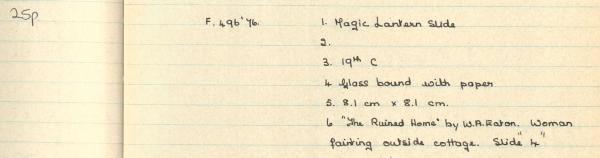 25p
F. 496'76. 1. Magic Lantern Slide
2.
3. 19th C
4 Glass bound with paper
5. 8.1 cm x 8.1 cm.
6 "The Ruined Home" by W.A. Eaton. Woman
fainting outside cottage. Slide "4"